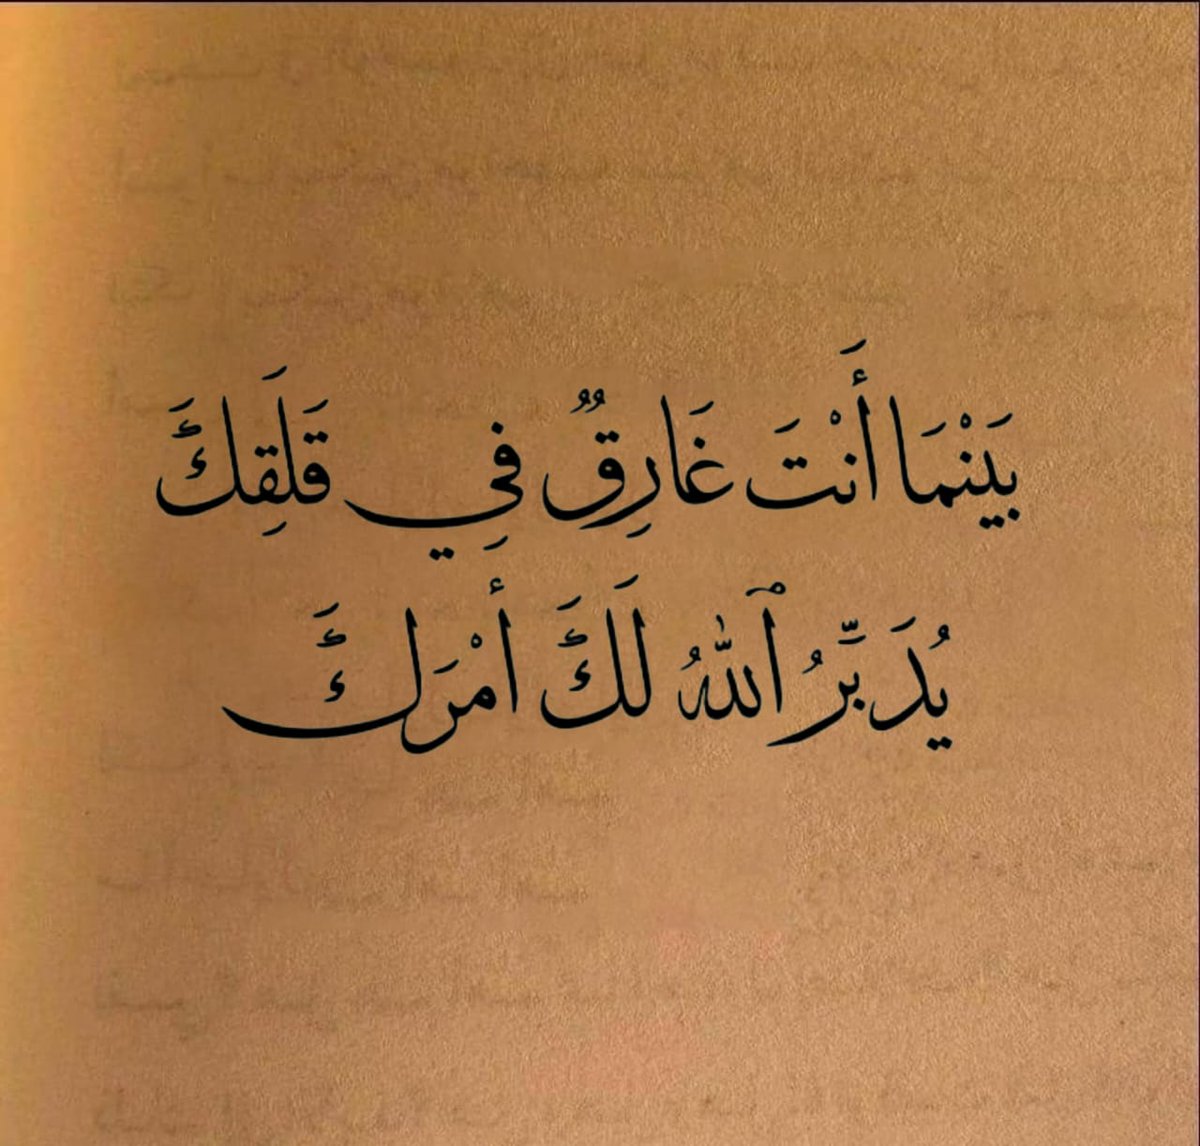 بَيْنَمَا أَنْتَ غَارِقٌ فِي قَلَقِكَ
يُدَبِّرُ ٱللّٰهُ لَكَ أَمْرَكَ